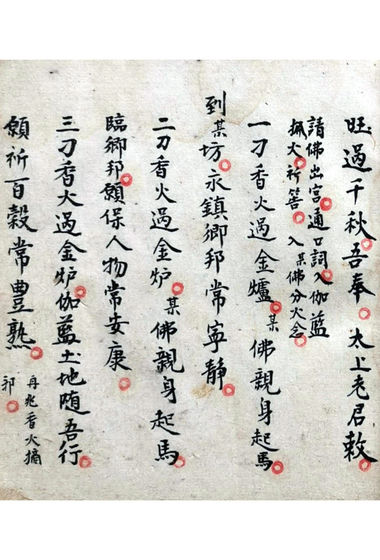 旺過千秋吾奉 太上老君敕
請佛出宮通口詞入伽藍
佩火祈筶 入某佛分火念
一刀香火過金爐某佛親身起馬
到某坊永鎮鄉邦常寧靜
二刀香火過金炉某佛親身起馬
臨鄉邦願保人物常安康
三刀香火過金炉伽藍土地随吾行
願祈百穀常豊熟 再兆香火捅
邜